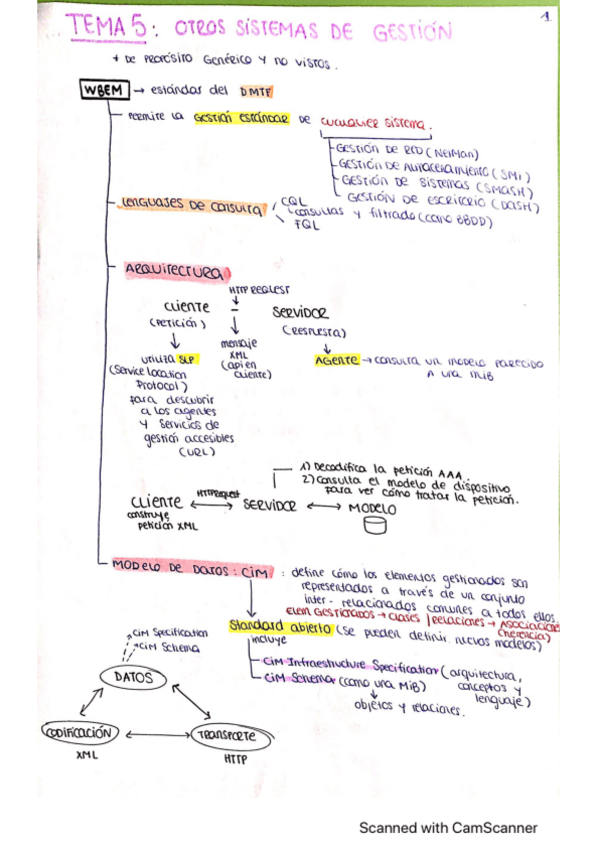 1
TEMA 5: OTROS SISTEMAS DE GESTIÓN
* DE PROPÓSITO GENÉRICO Y NO VISTOS.
WBEM → estándar del DMTF
PERMITE LA GESTIÓN ESTÁNDAR DE CUALQUIER SISTEMA.
GESTIÓN DE RED (NETMAN)
GESTIÓN DE ALMACENAMIENTO (SMI)
GESTIÓN DE SISTEMAS (SMASH)
GESTIÓN DE ESCRITORIO (DASH)
LENGUAJES DE CONSULTA
CQL
consultas y filtrado (como BBDD)
FQL
ARQUITECTURA
HTTP REQUEST
CLIENTE – SERVIDOR
(PETICIÓN) (RESPUESTA)
mensaje
XML
(api en
cliente)
utiliza SLP
(Service Location
Protocol)
para descubrir
a los agentes
y servicios de
gestión accesibles
(URL)
AGENTE → CONSULTA UN MODELO PARECIDO
A UNA MIB
1) Decodifica la petición AAA.
2) Consulta el modelo de dispositivo
para ver cómo tratar la petición.
CLIENTE HTTPREQUEST SERVIDOR ↔ MODELO
construye
petición XML
MODELO DE DATOS: CIM : define cómo los elementos gestionados son
representados a través de un conjunto
inter-relacionados comunes a todos ellos.
ELEM GESTIONADOS → CLASES | RELACIONES → ASOCIACIONES
(HERENCIA)
Standard abierto (se pueden definir nuevos modelos)
incluye
CIM Infraestructure Specification (arquitectura,
conceptos y
lenguaje)
CIM Schema (como una MIB)
objetos y relaciones.
CIM Specification
CIM Schema
DATOS
CODIFICACIÓN
XML
TRANSPORTE
HTTP
Scanned with CamScanner